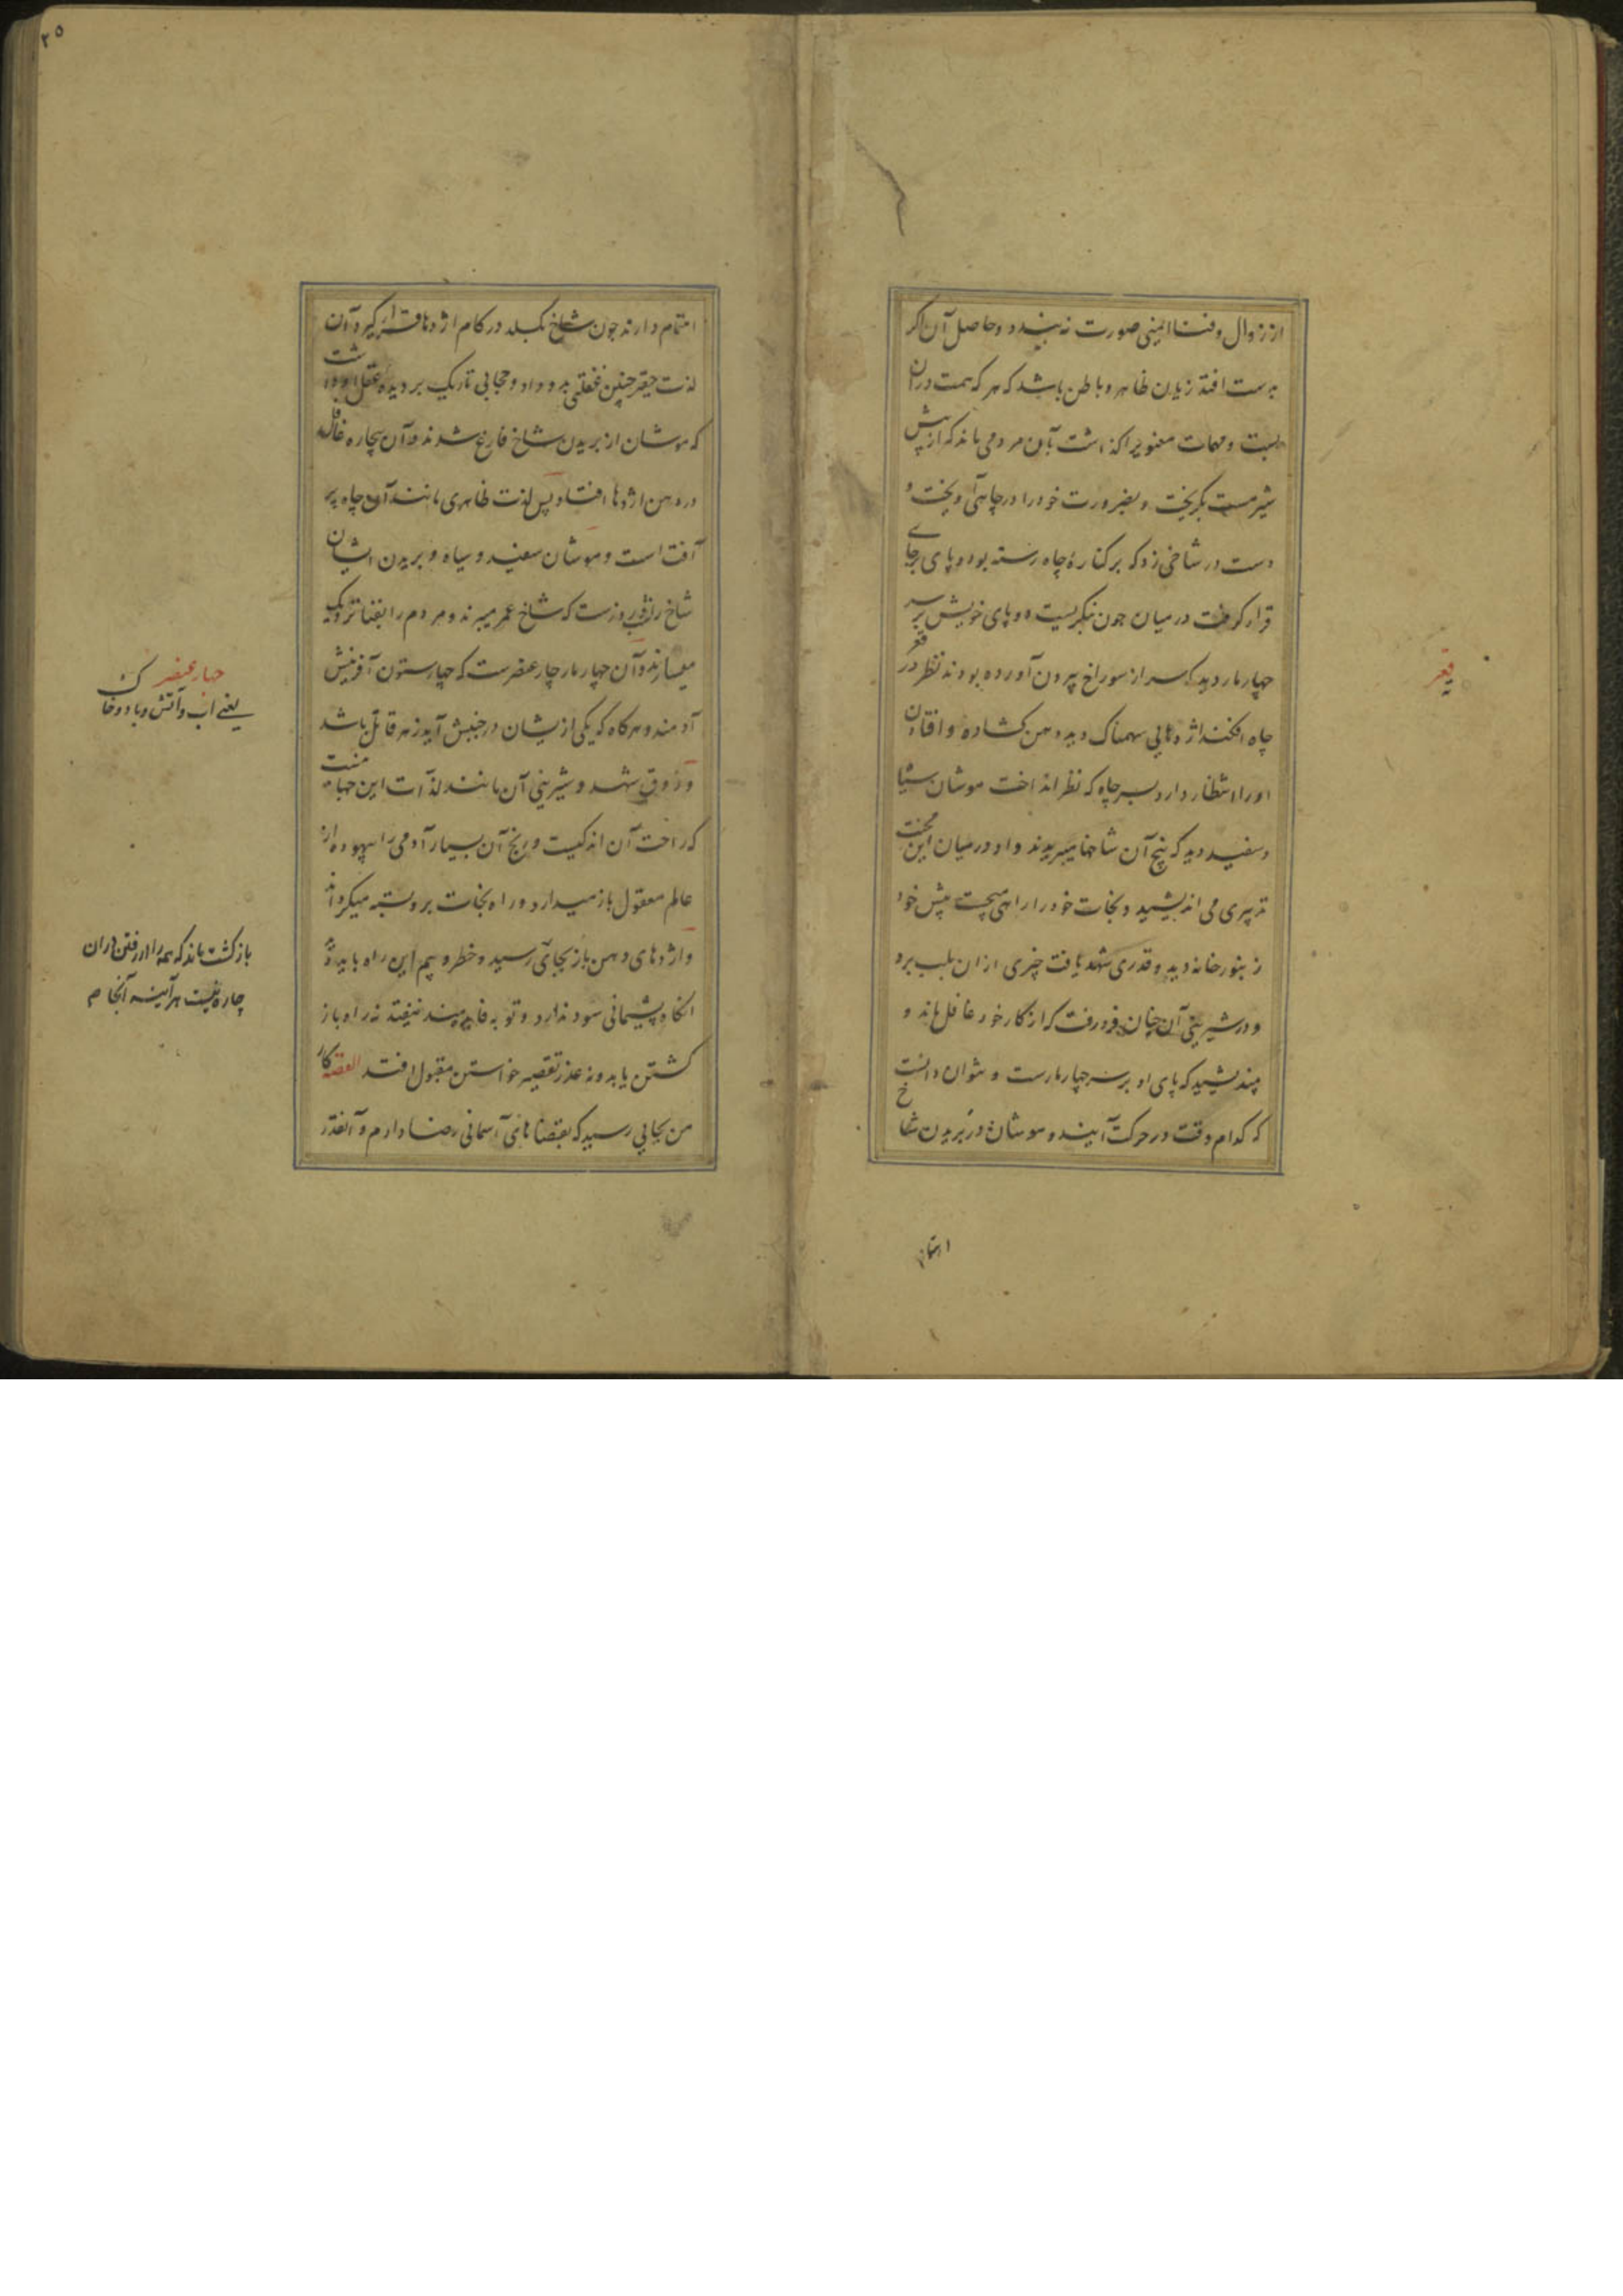 از زوال و فنا ایمنی صورت نه بندد و حاصل آن اکر
بدست افتد زیان ظاهر و باطن باشد که هر که همت دران
بست و مهمات معنویرا کذاشت بآن مردمی ماند که از پیش
شیر مست بگریخت و بضرورت خود را در چاهی آویخت و
دست در شاخی زد که بر کناره چاه رسته بود و پای بر جای
قرار کرفت درمیان چون بنکریست دو پای خویش بر سر
چهار مار دید که سر از سوراخ بیرون آورده بودند نظر در قعر
چاه افکند اژدهایی سهمناک دید دهن کشاده و افتادن
او را انتظار دارد بسر چاه که نظر انداخت موشان سیاه
و سفید دید که بیخ آن شاخها میبریدند و او درمیان این محنت
تدبیری می اندیشید و نجات خود را راهی میجست پیش خود
زنبور خانه دید و قدری شهد یافت چیزی ازان بلب برد
و در شیرینی آن چنان فرو رفت که از کار خود غافل ماند و
نیندیشید که پای او بر سر چهار مارست و نتوان دانست
که کدام وقت در حرکت آیند و موشان در بریدن شاخ
قعر
اهتمام
۲۵
اهتمام دارند چون شاخ بکسلد در کام اژدها قرار گیرد آن
لذت حقیر چنین غفلتی بدو داد و حجابی تاریک بر دیده عقل او داشت
که موشان از بریدن شاخ فارغ شدند و آن بیچاره غافل
در دهن اژدها افتاد پس لذت ظاهری مانند آن چاه پر
آفت است و موشان سفید و سیاه و بریدن ایشان
شاخ را شب روزست که شاخ عمر میبرند و مردم را بفنا نزدیک
میسازند و آن چهار مار چار عنصرست که چهار ستون آفرینش
آدمند و هرکاه که یکی ازیشان در جنبش آید زهر قاتل باشد
و ذوق شهد و شیرینی آن مانند لذآت این جهانیست
که راحت آن اندکیست و رنج آن بسیار آدمی را بیهوده از
عالم معقول باز میدارد و راه نجات برو بسته میکرداند
و اژدهای دهن باز بجای رسید و خطره بیم این راه باید
انکاه پشیمانی سود ندارد و توبه فایده مند نیفتد نه راه باز
کشتن یابد و نه عذر تقصیر خواستن مقبول افتد القصه کار
من بجایی رسید که بقضاهای آسمانی رضا دارم و آنقدر
چهار عنصر
یعنے اب و آتش و باد و خاک
باز کشت ماند که همه را در رفتن دران
چاره نیست هر آینه آنجا م